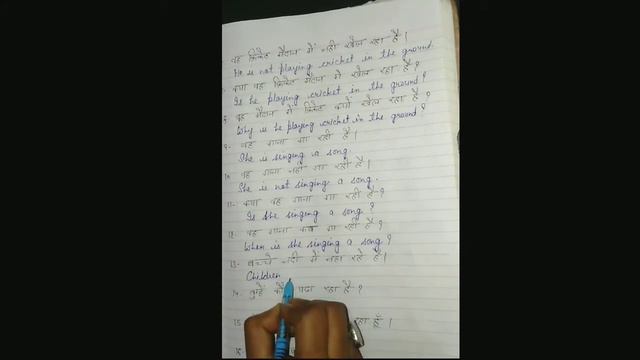 वह क्रिकेट मैदान में नहीं खेल रहा है।
He is not playing cricket in the ground.
क्या वह क्रिकेट मैदान में खेल रहा है?
Is he playing cricket in the ground?
वह मैदान में क्रिकेट क्यों खेल रहा है?
Why is he playing cricket in the ground?
9- वह गाना गा रही है।
She is singing a song.
10- वह गाना नहीं गा रही है।
She is not singing a song.
11- क्या वह गाना गा रही है?
Is she singing a song?
12- वह गाना कब गा रही है?
When is she singing a song?
13- बच्चे नदी में नहा रहे हैं।
Children
14- तुम्हें कौन पढा रहा है?
15 रहा हूँ।